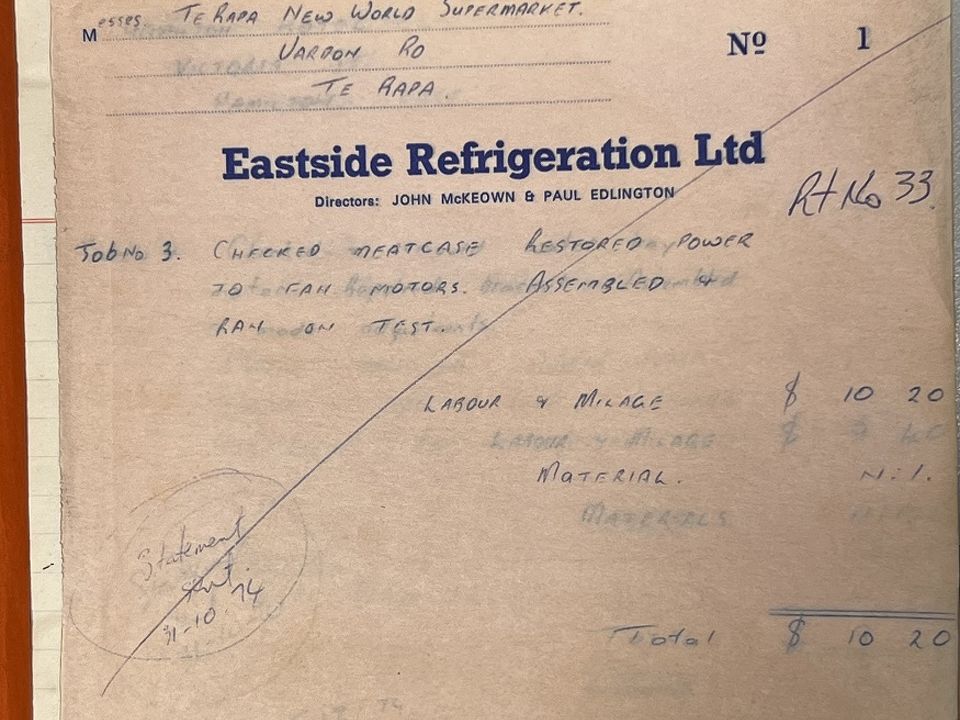 Messes. TE RAPA NEW WORLD SUPERMARKET.
VARDON RD
TE RAPA.
Nº 1
Eastside Refrigeration Ltd
Directors: JOHN McKEOWN & PAUL EDLINGTON
Rt No 33.
Job No 3. CHECKED MEATCASE RESTORED POWER
TO FAN MOTORS. ASSEMBLED &
RAN ON TEST.
LABOUR & MILAGE $ 10 20
LABOUR & MILAGE $
MATERIAL. Nil.
MATERIALS
Statement
sent.
31-10-74
Total $ 10 20